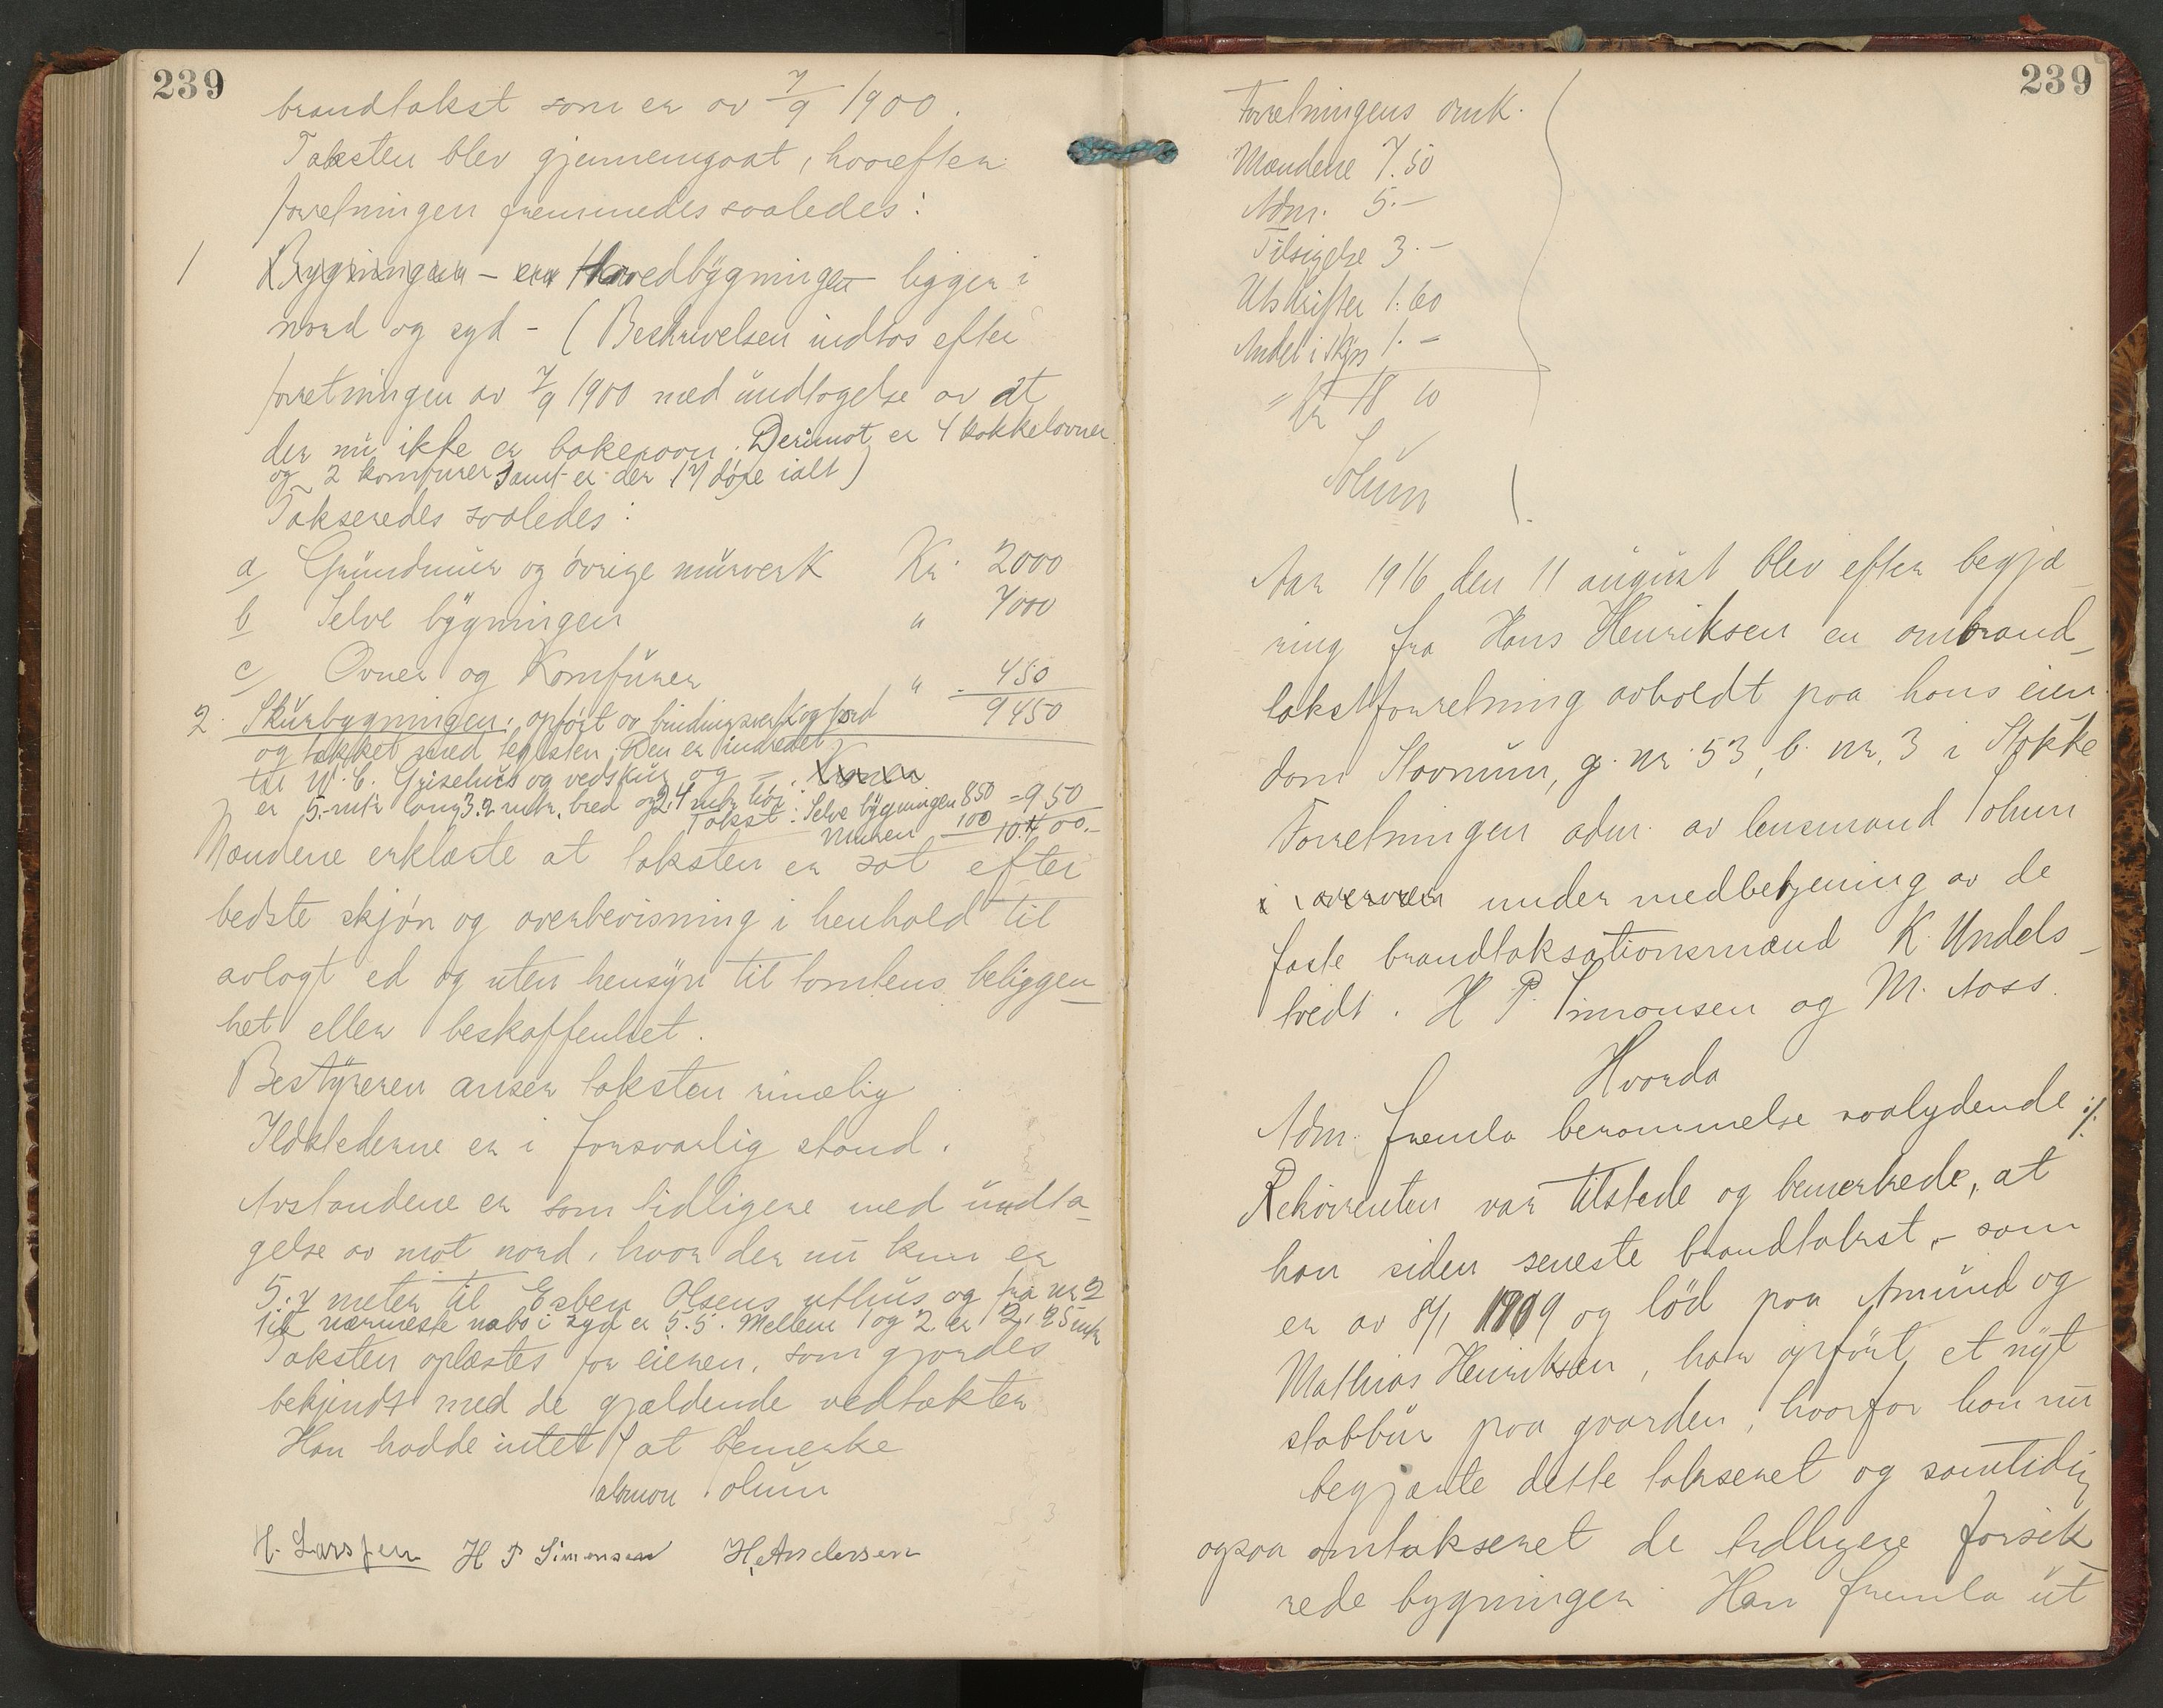 239
brandtakst som er av 7/9 1900.
Taksten blev gjennemgaat, hvorefter
forretningen fremmedes saaledes:
1 Bygningen - en Hovedbygningen ligger i
nord og syd - (Beskrivelsen indtas efter
forretningen av 7/9 1900 med undtagelse av at
der nu ikke er bakerovn. Derimot er 4 kakkelovner
og 2 komfurer samt er der 17 døre ialt)
Takseredes saaledes:
a Grundmur og øvrige murverk Kr. 2000
b Selve bygningen " 7000
c Ovner og Komfurer " 450
9450
2. Skurbygningen: opført av bindingsverk og bord
og tækket med teglsten. Den er indredet
til W.C. Grisehus og vedskur og
er 5.- mtr lang 3.2 mtr. bred og 2.4 mtr høi: Takst: Selve bygningen 850 = 950
Muren 100 10.400.-
Mændene erklærte at taksten er sat efter
bedste skjøn og overbevisning i henhold til
avlagt ed og uten hensyn til tomtens beliggen-
het eller beskaffenhet.
Bestyreren anser taksten rimelig
Ildstederne er i forsvarlig stand.
Avstandene er som tidligere med undta-
gelse av mot nord, hvor der nu kun er
5.7 meter til Esben Olsens uthus og fra nr 2
til nærmeste nabo i syd er 5.5. Mellem 1 og 2 er 12,25 mtr
Taksten oplæstes for eieren, som gjordes
bekjendt med de gjældende vedtækter
Han hadde intet at bemerke
Solum
H. Larssen H P Simonsen H. Andersen
239
Forretningens omk.
Mændene 7.50
Adm. 5.-
Tilsigelse 3.-
Utskrifter 1.60
Andel i Skys 1.-
= Kr 18 10
Solum
Aar 1916 den 11 august blev efter begjæ-
ring fra Hans Henriksen en ombrand-
takstforretning avholdt paa hans eien-
dom Stavnum, g. nr. 53, b. nr. 3 i Stokke
Forretningen adm. av lensmand Solum
under medbetjening av de
faste brandtaksationsmænd K. Undels-
tvedt. H P. Simonsen og M. Aass.
Hvorda
Adm. fremla berammelse saalydende ./.
Rekvirenten var tilstede og bemerkede, at
han siden seneste brandtakst, - som
er av 8/1 1909 og lød paa Amund og
Mathias Henriksen, har opført et nyt
stabbur paa gaarden, hvorfor han nu
begjærte dette takseret og samtidig
ogsaa omtakseret de tidligere forsik
rede bygninger. Han fremla ut